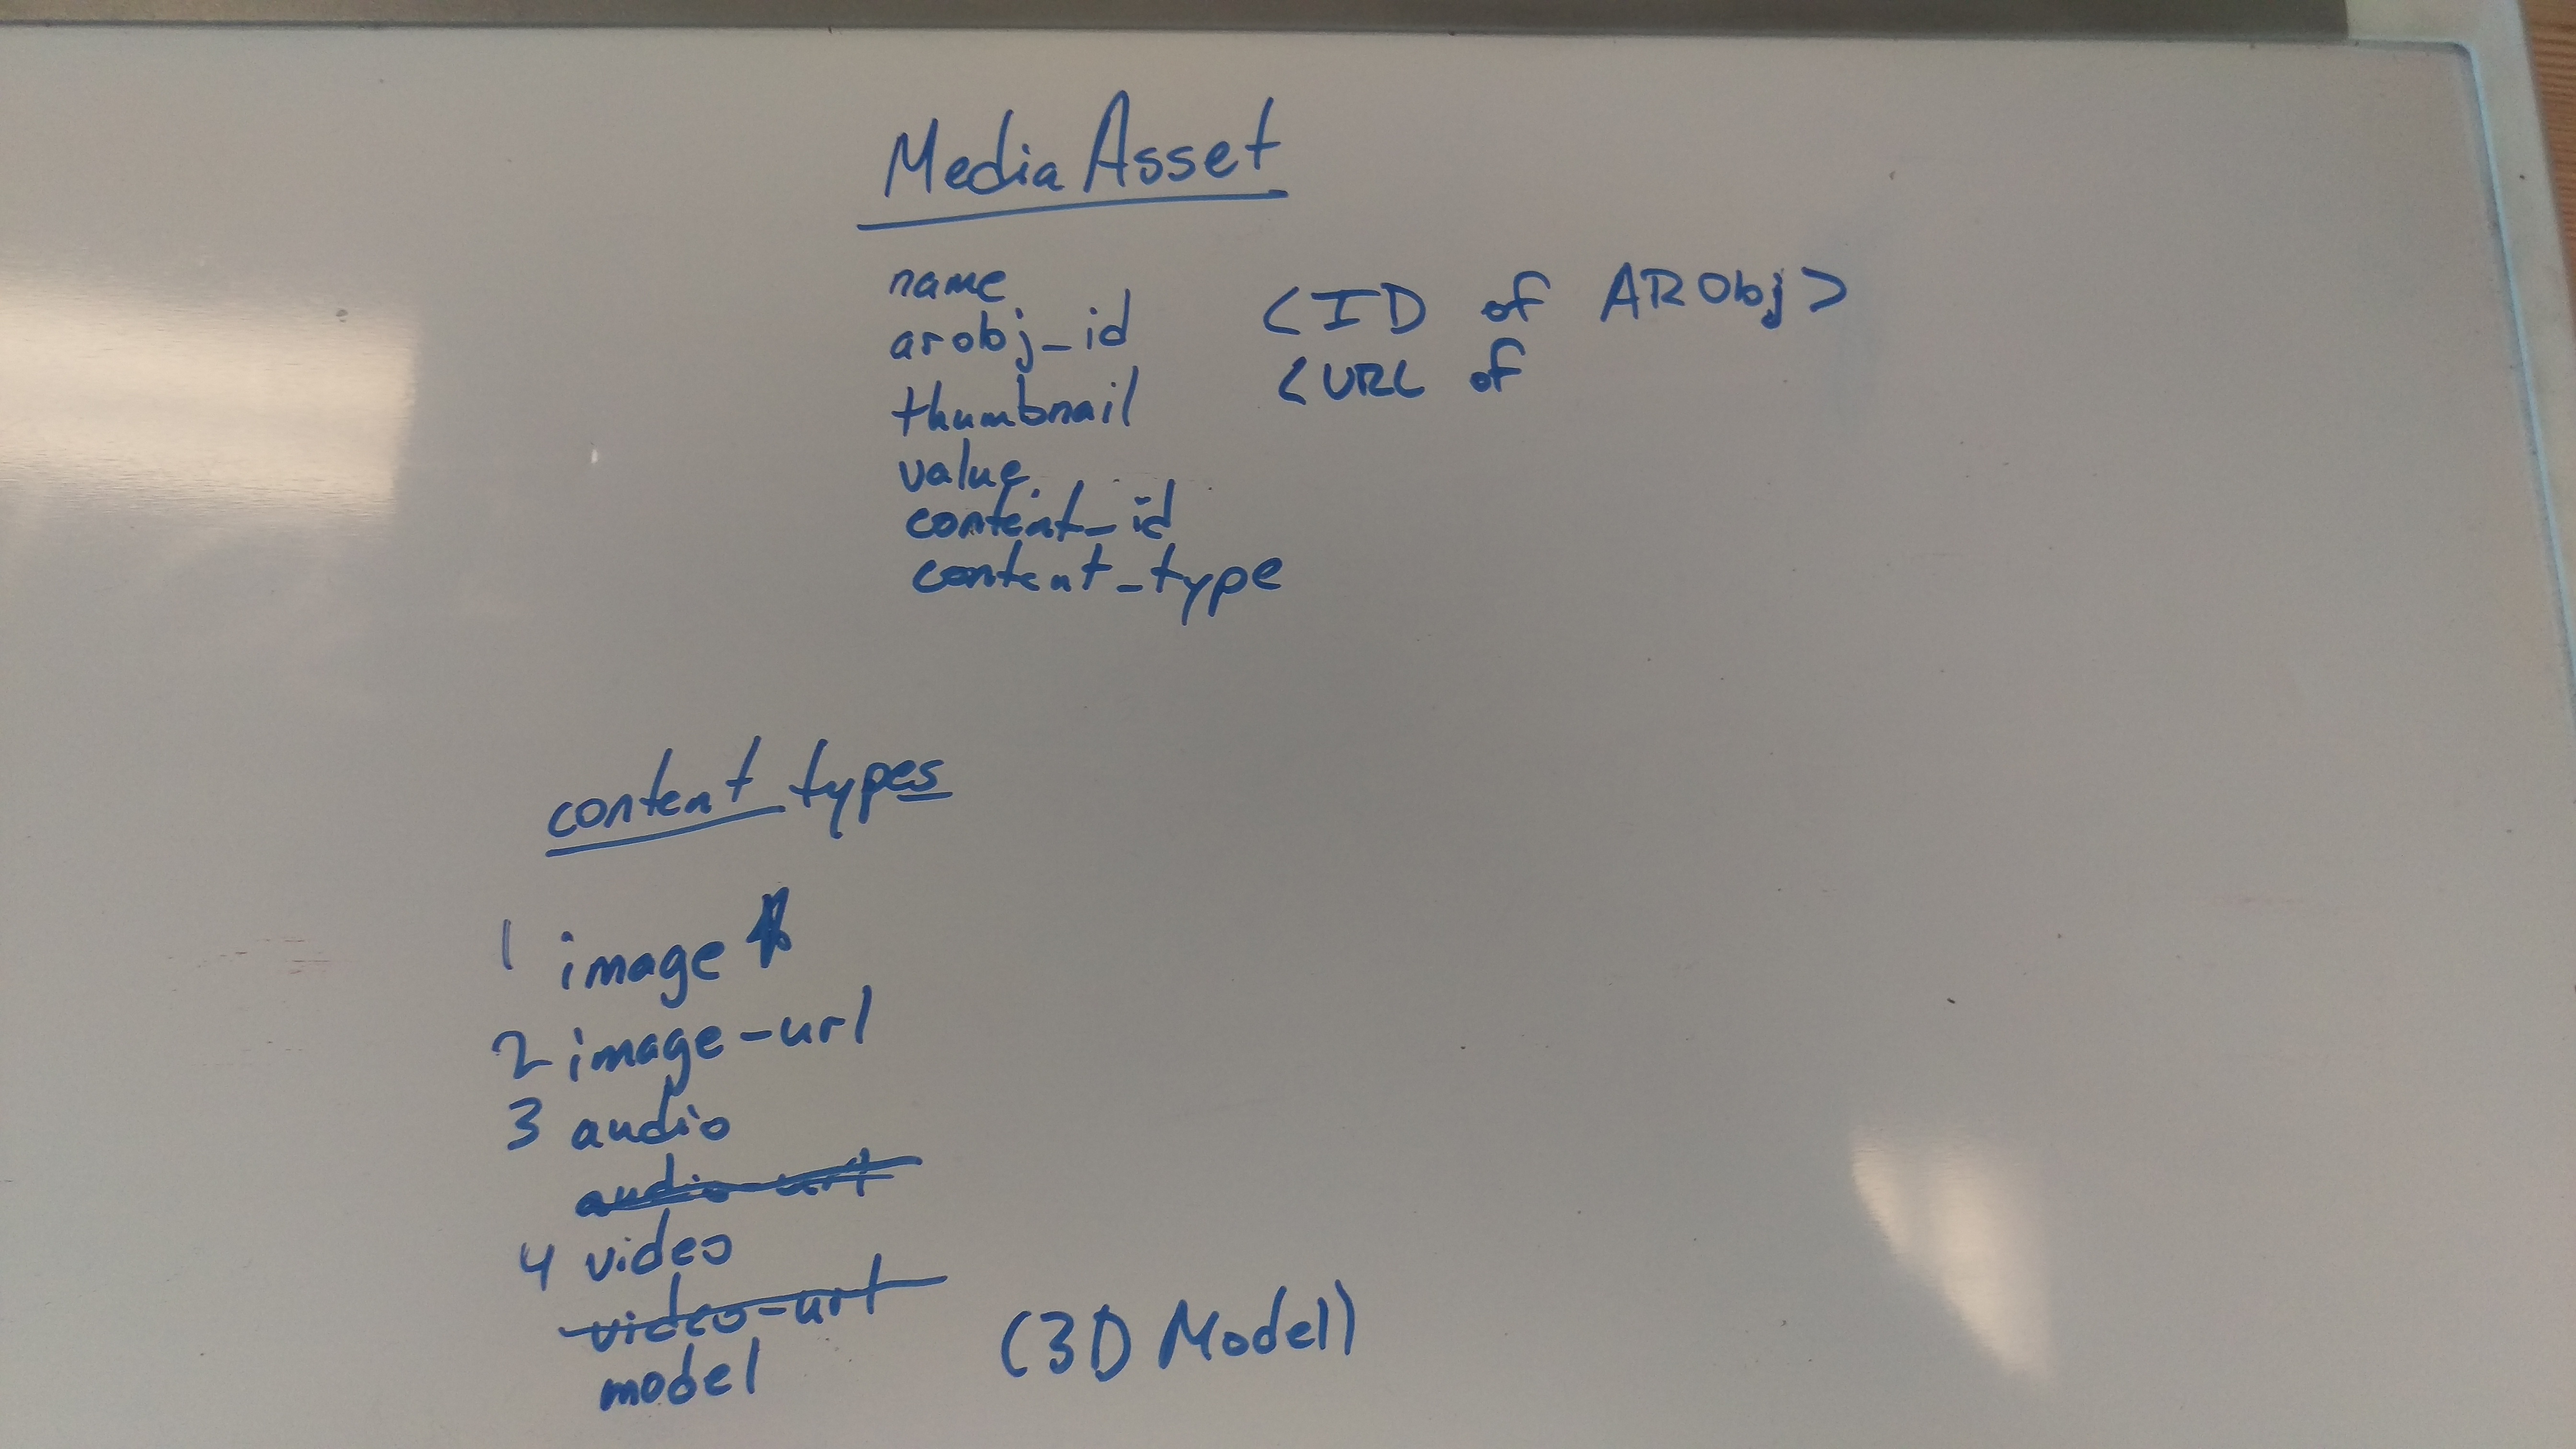 Media Asset
name
arobj_id <ID of ARObj>
thumbnail <URL of
value
content_id
content_type
content types
1 image
2 image-url
3 audio
audio-url
4 video
video-url
model (3D Modell)